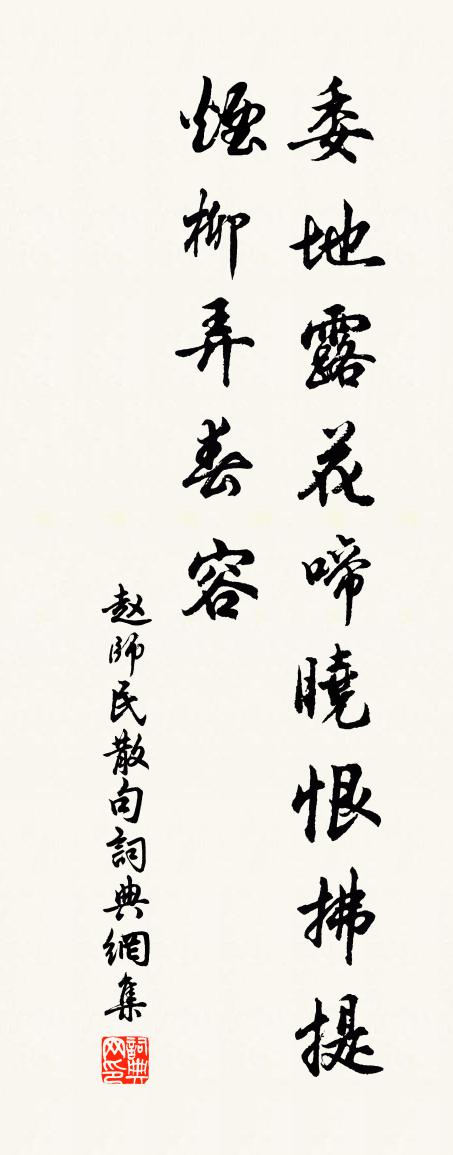 委地露花啼曉恨拂提
煙柳弄春容
赵師民散句詞典網集
詞典网印